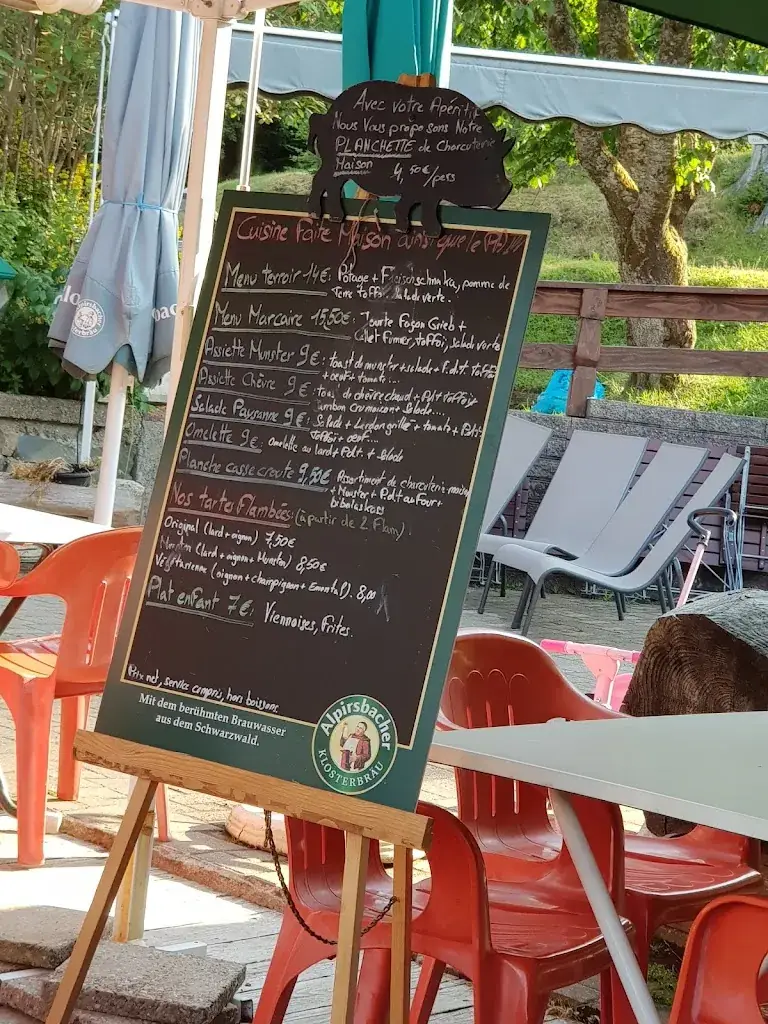 Avec votre Apéritif
Nous Vous proposons Notre
PLANCHETTE de Charcuterie
Maison 4,50€/pers
Cuisine faite Maison ainsi que le
Menu terroir 14€: Potage + Fleischschnaka, pomme de
Terre toffi.. salade verte.
Menu Marcaire 15,50€: Tourte Façon Grieb +
Collet Fumer, toffoi, salade verte
Assiette Munster 9€: toast de munster + salade + P.d.t.
+ oeuf + tomate...
Assiette Chèvre 9€: toast de chèvre chaud + P.d.t
Jambon Cru maison + Salade....
Salade Paysanne 9€: Salade + Lardon grillé + tomate + P.d.t
+ oeuf...
Omelette 9€: Omelette au lard + P.d.t. + salade
Planche casse croute 9,50€ Assortiment de charcuterie maison
+ Munster + P.d.t au Four +
bibalaskass
Nos tartes Flambées: (à partir de 2 Flam).
Original (lard + oignon) 7,50€
(lard + oignon + Munster) 8,50€
Végétarienne (oignon + champignon + Emmental). 8,00
Plat enfant 7€: Viennoises, frites.
Prix net, service compris, hors boissons
Mit dem berühmten Brauwasser
aus dem Schwarzwald.
Alpirsbacher
KLOSTERBRÄU